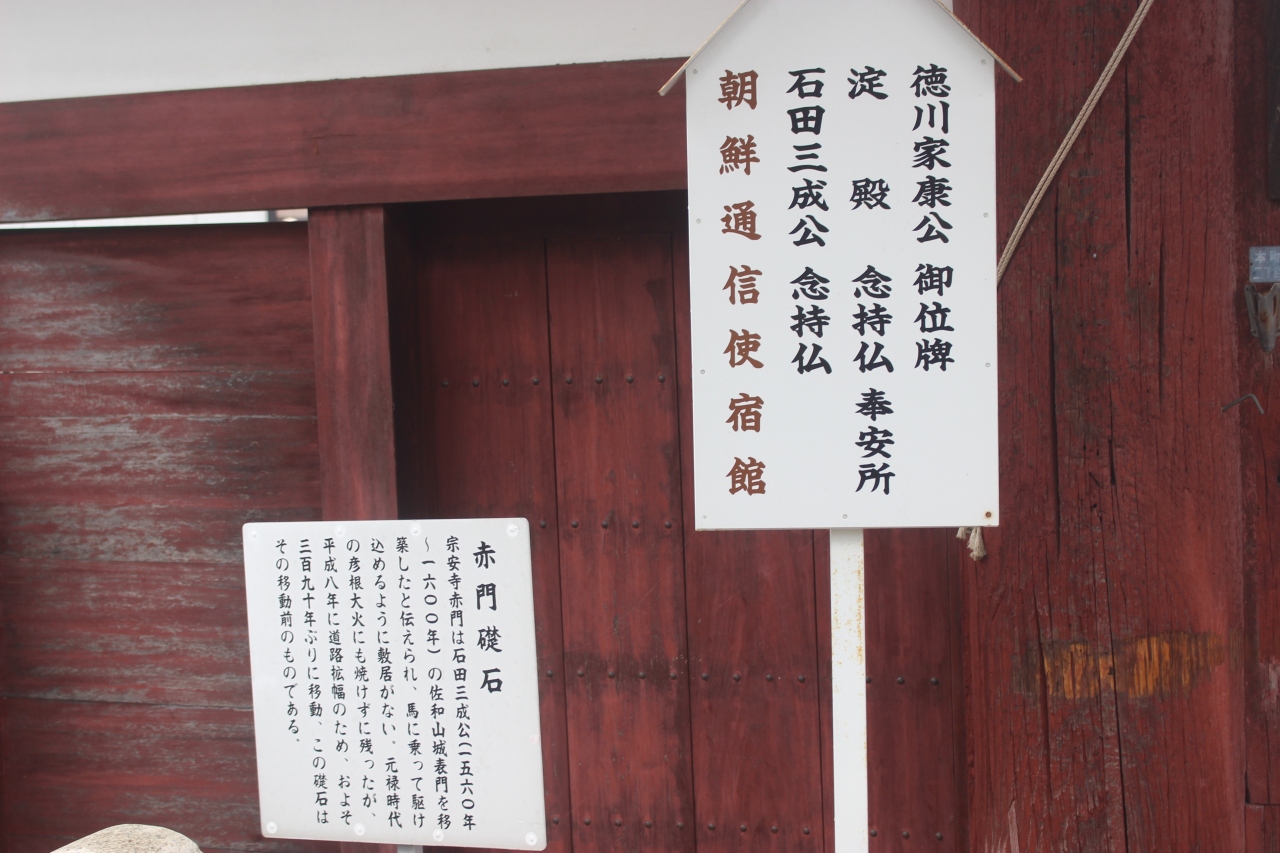 徳川家康公 御位牌
淀 殿 念持仏 奉安所
石田三成公 念持仏
朝鮮通信使宿館
赤門礎石
宗安寺赤門は石田三成公(一五六〇年
～一六〇〇年)の佐和山城表門を移
築したと伝えられ、馬に乗って駆け
込めるように敷居がない。元禄時代
の彦根大火にも焼けずに残ったが、
平成八年に道路拡幅のため、およそ
三百九十年ぶりに移動、この礎石は
その移動前のものである。